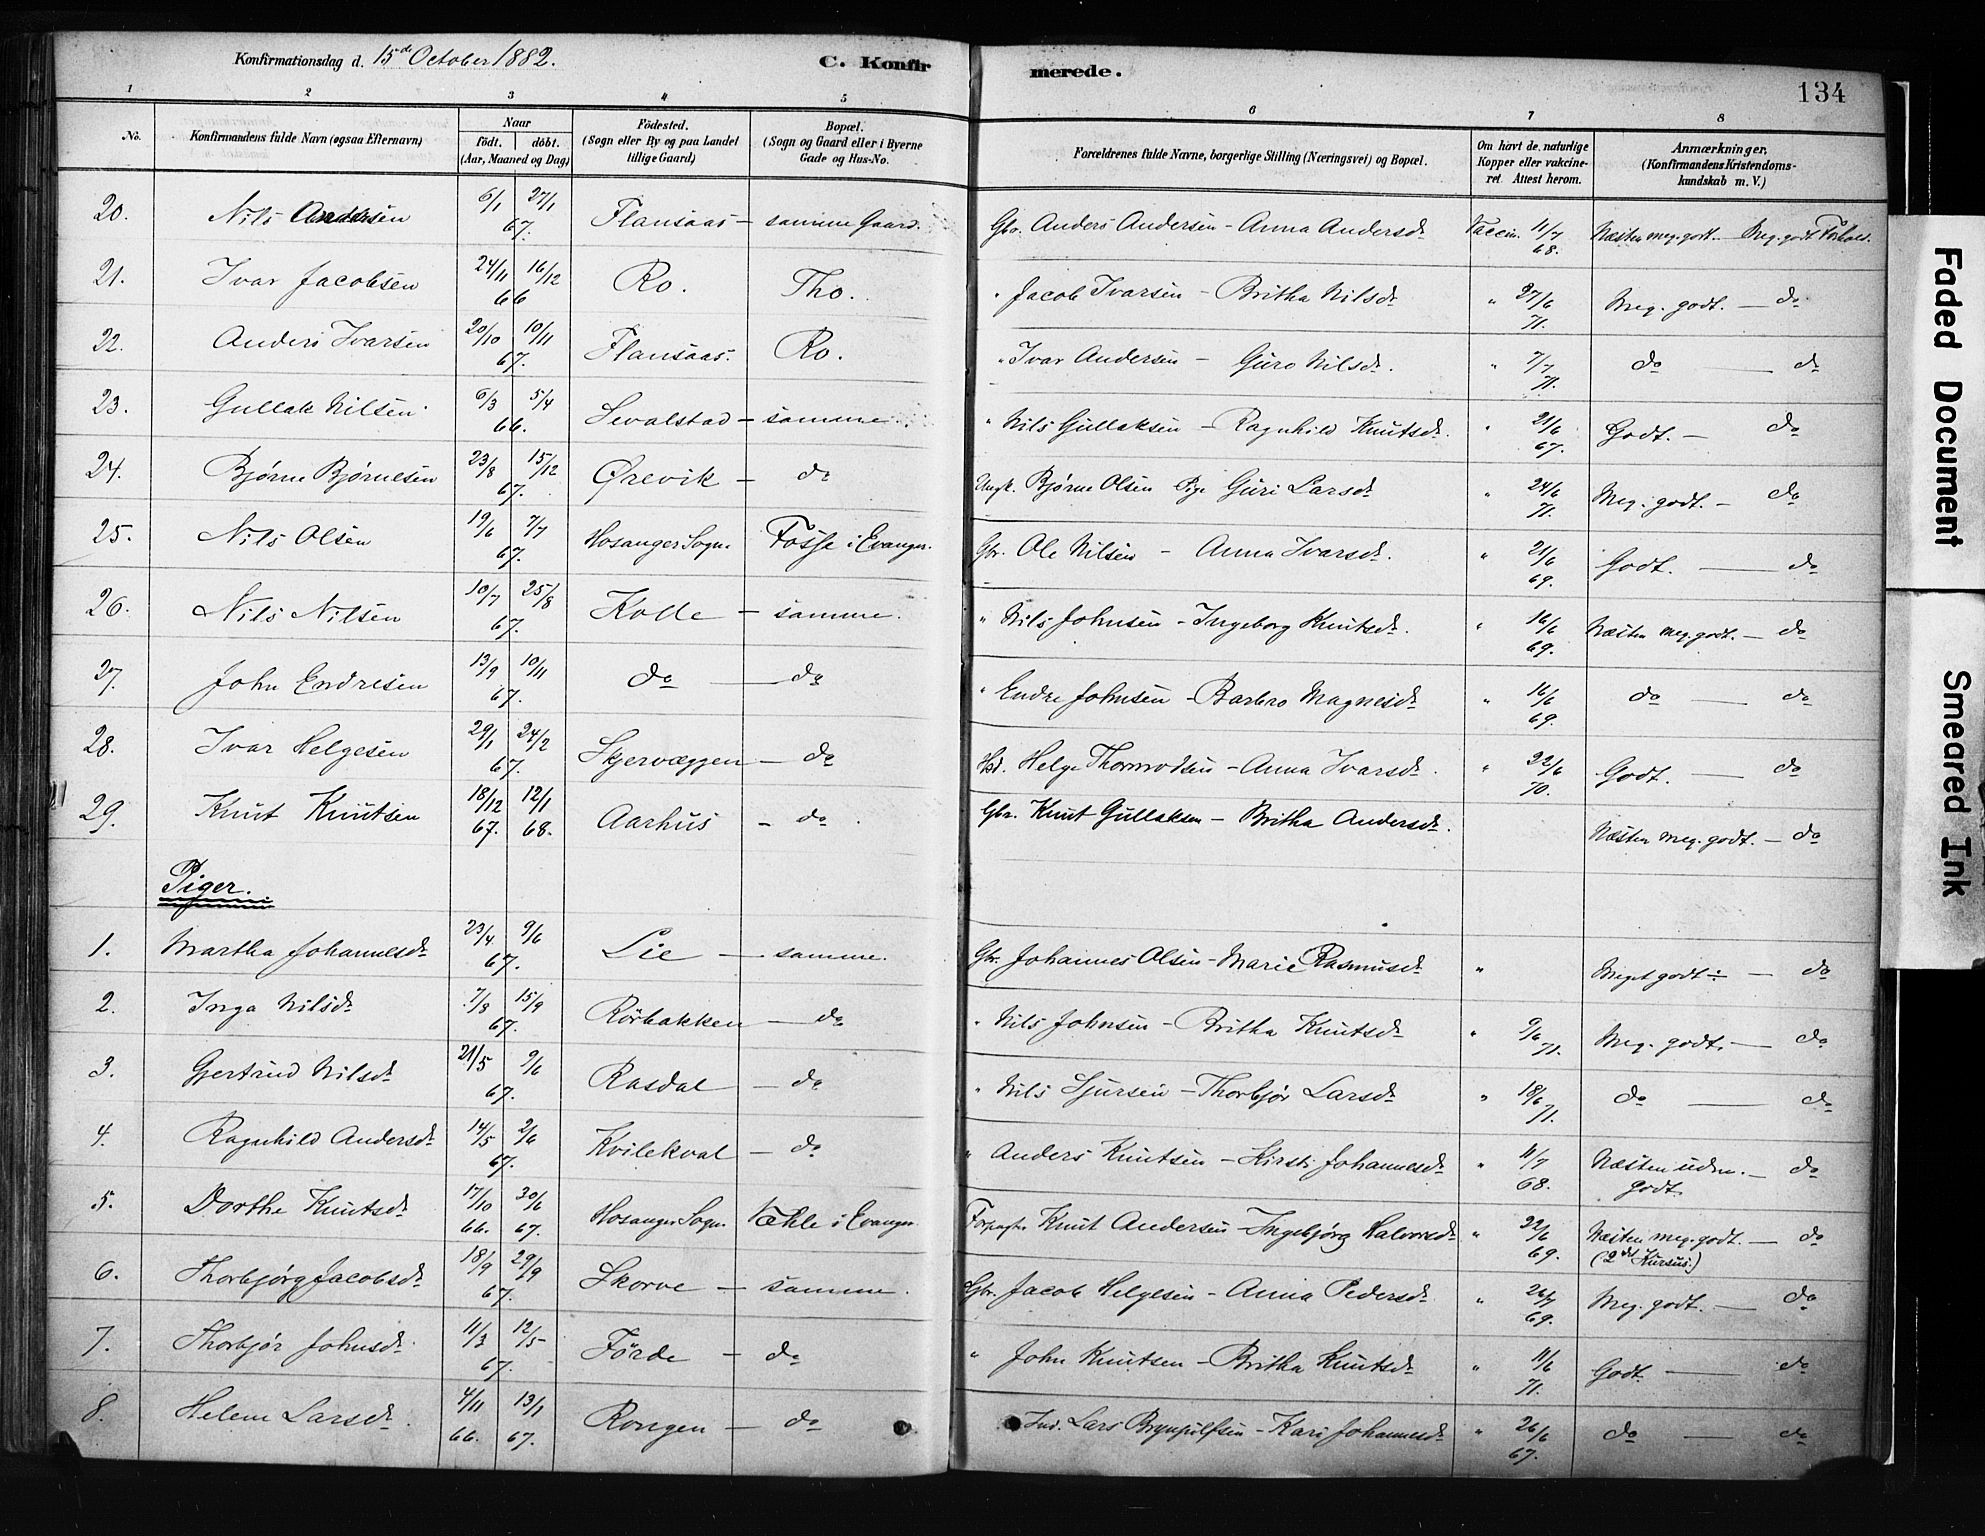 Konfirmationsdag d. 15de October 1882. C. Konfirmerede. 134
1 2 3 4 5 6 7 8
No. Konfirmandens fulde Navn (ogsaa Efternavn) Naar födt. döbt. (Aar, Maaned og Dag) Födested. (Sogn eller By og paa Landet tillige Gaard) Bopæl. (Sogn og Gaard eller i Byerne Gade og Hus-No. Forældrenes fulde Navne, borgerlige Stilling (Næringsvei) og Bopæl. Om havt de naturlige Kopper eller vakcineret Attest herom. Anmærkninger, (Konfirmandens Kristendomskundskab m. V.)
20. Nils Andersen 6/1 27/1 67. Flansaas – samme Gaard. Gbr. Anders Andersen – Anna Andersdr Vaccin. 11/7 68. Næsten meg. godt. – Meg. godt Forhold.
21. Ivar Jacobsen 24/11 16/12 66 Ro. Tho. " Jacob Ivarsen – Britha Nilsdr " 27/6 71. Meg. godt. – do
22. Anders Ivarsen 20/10 10/11 67. Flansaas. Ro. " Ivar Andersen – Guro Nilsdr. " 7/7 71. do – do
23. Gullak Nilsen 6/3 5/4 66. Sevalstad – samme. " Nils Gullaksen – Ragnhild Knutsdr. " 21/6 67. Godt. – do
24. Bjørne Bjørnesen 23/8 15/12 67. Ørevik – do Ungk. Bjørne Olsen Pige Guri Larsdr " 24/6 71. Meg. godt. – do
25. Nils Olsen 19/6 7/7 67. Hosanger Sogn Fosse i Evanger. Gbr. Ole Nilsen – Anna Ivarsdr. " 21/6 69. Godt. – do
26. Nils Nilsen 10/7 25/8 67. Kolle – samme. " Nils Johnsen – Ingeborg Knutsdr. " 16/6 69. Næsten meg. godt. – do
27. John Endresen 13/9 10/11 67. do – do " Endre Johnsen – Barbro Magnesdr " 16/6 69. do – do
28. Ivar Helgesen 29/1 24/2 67. Skjervæggen – do Hd. Helge Thormodsen – Anna Ivarsdr. " 22/6 70. Godt. – do
29. Knut Knutsen 18/12 67. 12/1 68. Aarhus – do. Gbr. Knut Gullaksen – Britha Andersdr. Næsten meg. godt. – do
Piger.
1. Martha Johannesdr 23/4 9/6 67. Lie – samme. Gbr. Johannes Olsen – Marie Rasmusdr " Meget godt ÷ – do
2. Inga Nilsdr 7/8 15/9 67. Rörbakken – do " Nils Johnsen – Britha Knutsdr " 9/6 71. Meg. godt. – do
3. Gjertrud Nilsdr 21/5 9/6 67. Rasdal – do " Nils Sjursen – Thorbjør Larsdr " 18/6 71. do – do
4. Ragnhild Andersdr 14/5 2/6 67. Kvilekval – do " Anders Knutsen – Kirsti Johannesdr " 11/7 68. Næsten udm. godt. – do
5. Dorthe Knutsdr 17/10 66. 30/6 67. Hosanger Sogn Væhle i Evanger. Forpagter Knut Andersen – Ingebjørg Halvorsdr " 22/6 69. Næsten meg. godt. – do (2det Kursus.)
6. Thorbjørg Jacobsdr 18/9 29/9 67. Skorve – samme. Gbr. Jacob Helgesen – Anna Pedersdr " 26/7 69. Meg. godt. – do
7. Thorbjør Johnsdr 11/3 12/5 67. Förde – do " John Knutsen – Britha Knutsdr " 11/6 71. Godt. – do
8. Helene Larsdr. 4/11 66. 13/1 67. Rongen – do Ind. Lars Brynjulfsen – Kari Johannesdr " 26/6 67. do – do
Faded Document
Smeared Ink